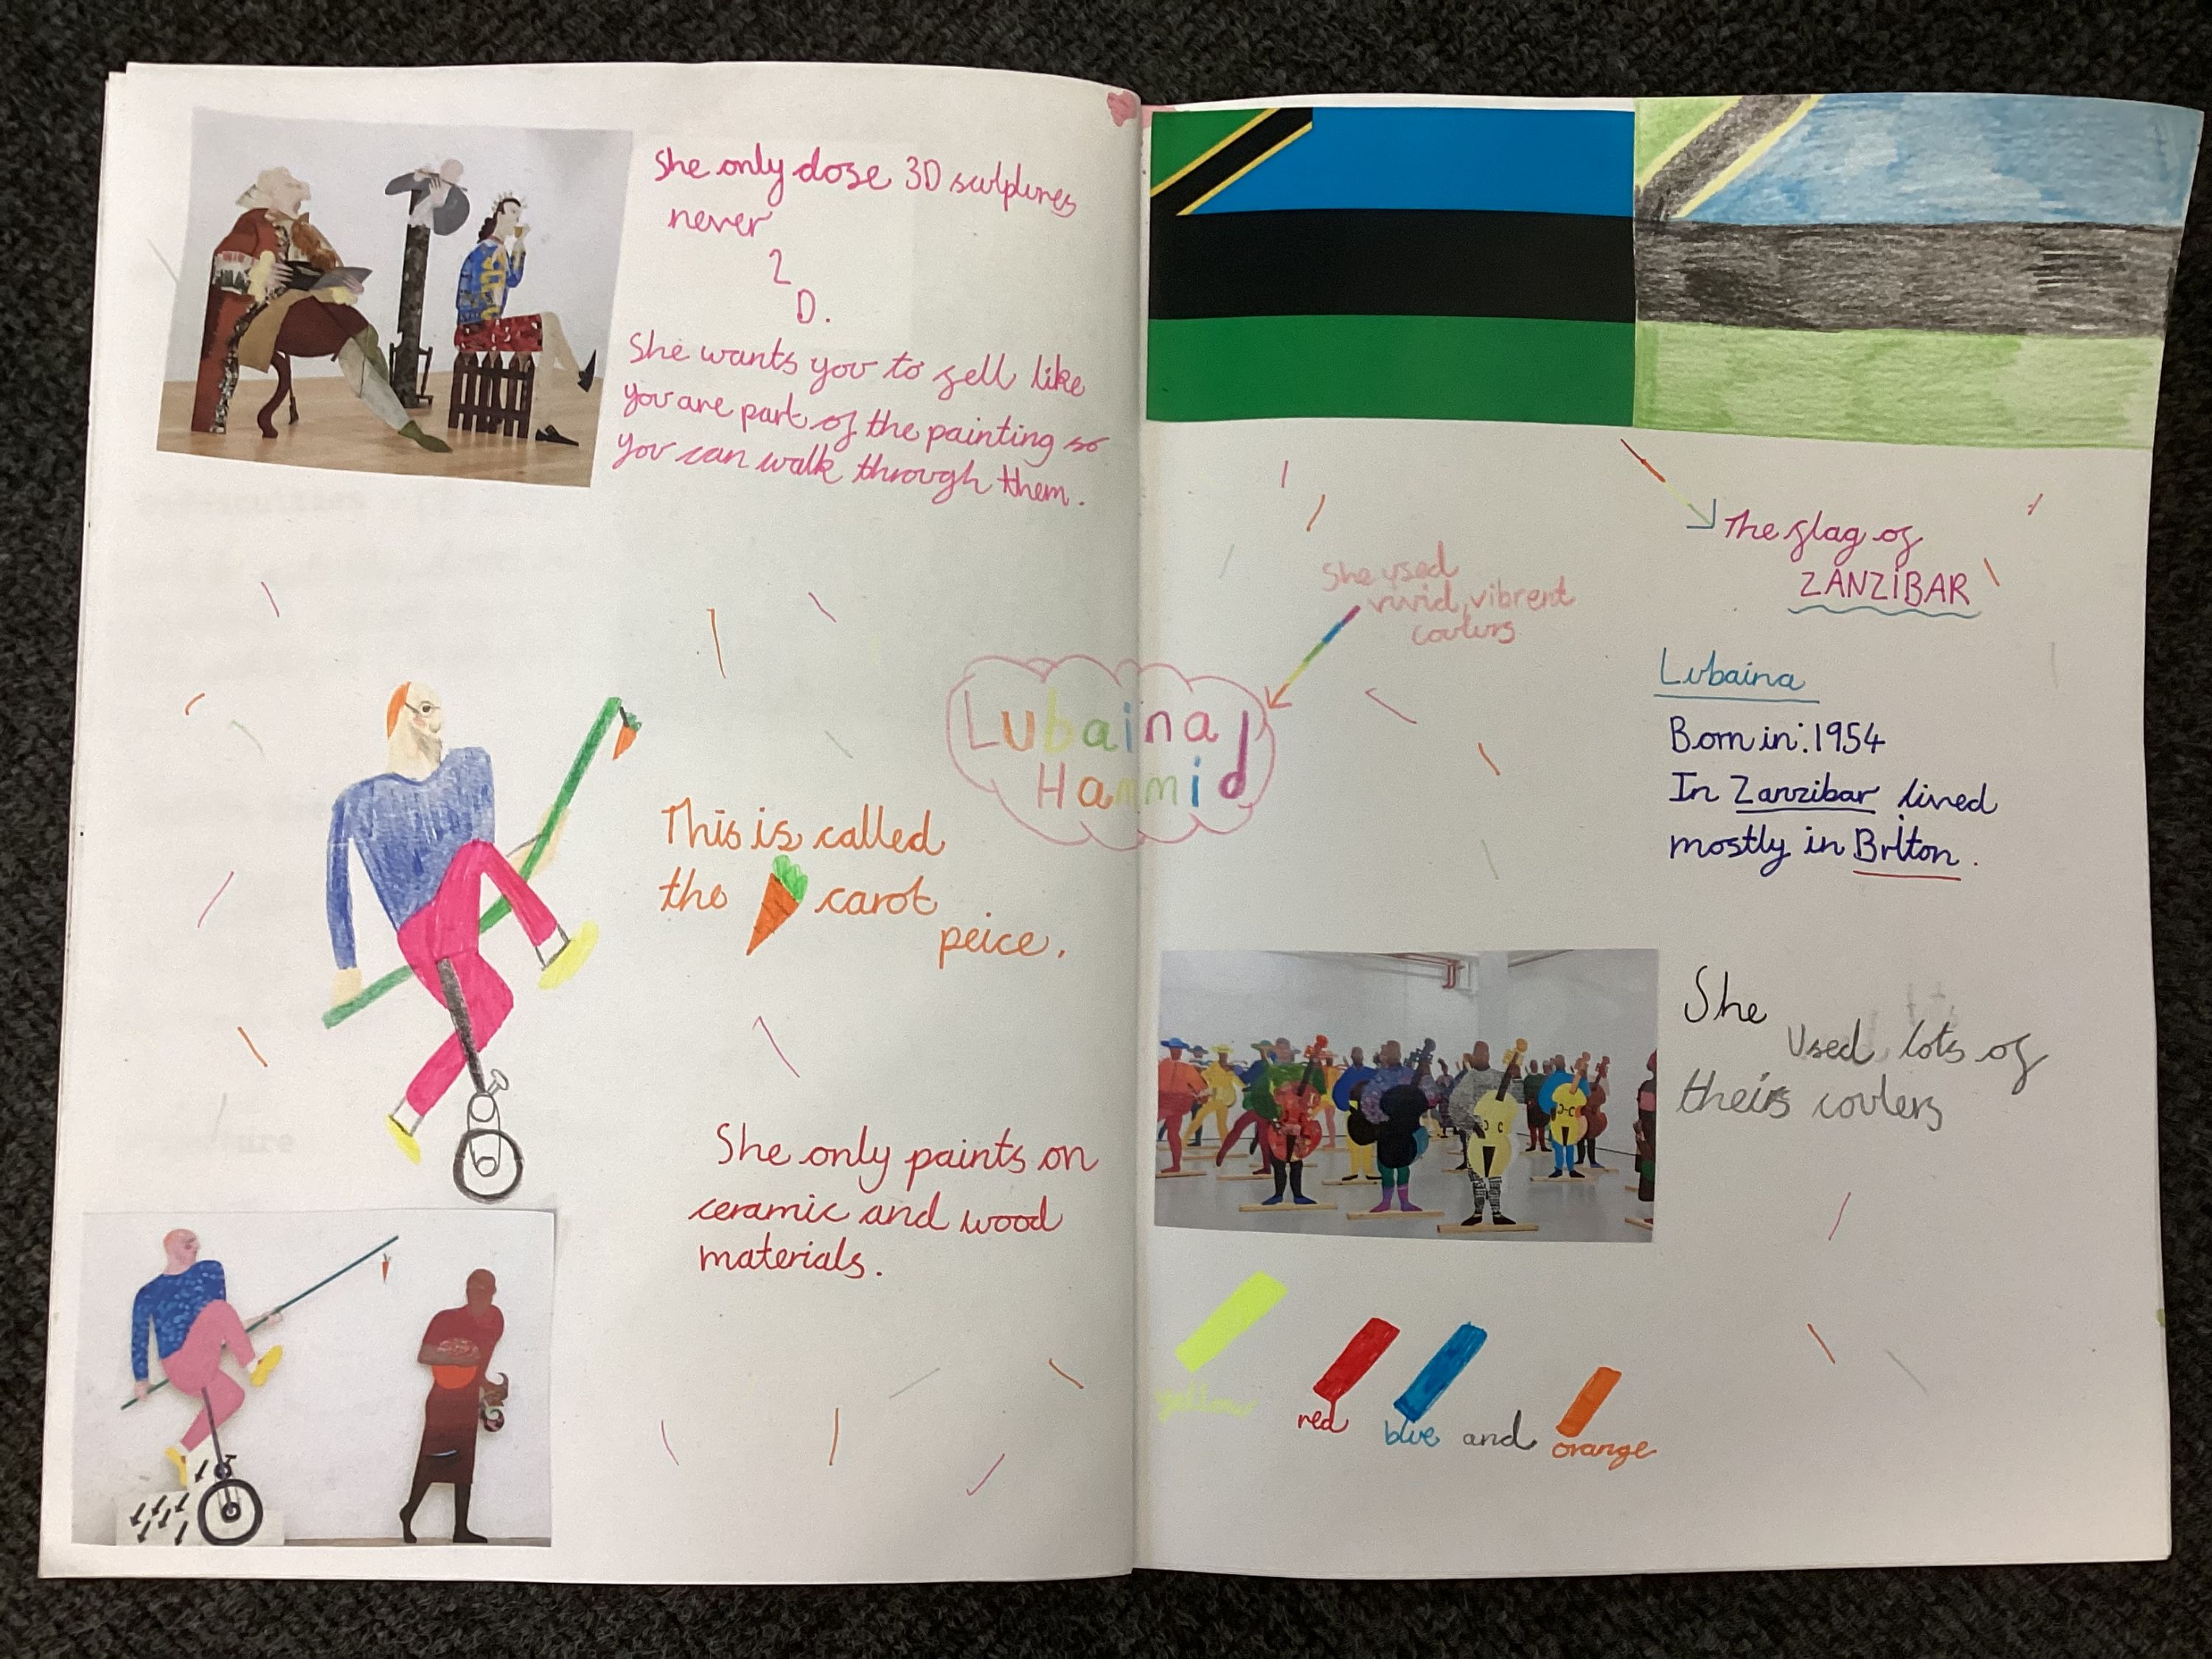 She only dose 3D sculptures
never
2
D.
She wants you to fell like
you are part of the painting so
you can walk through them.
This is called
the carot
peice.
She only paints on
ceramic and wood
materials.
Lubaina
Hammid
She used
vivid, vibrent
coulers
The flag of
ZANZIBAR
Lubaina
Born in: 1954
In Zanzibar lived
mostly in Briton.
She
Used lots of
theirs coulers
yellow
red blue and orange